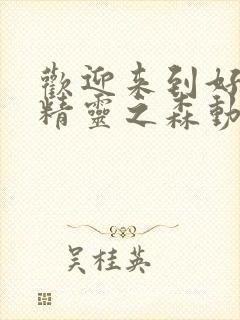 歡迎来到好
精靈之森動
吴桂英